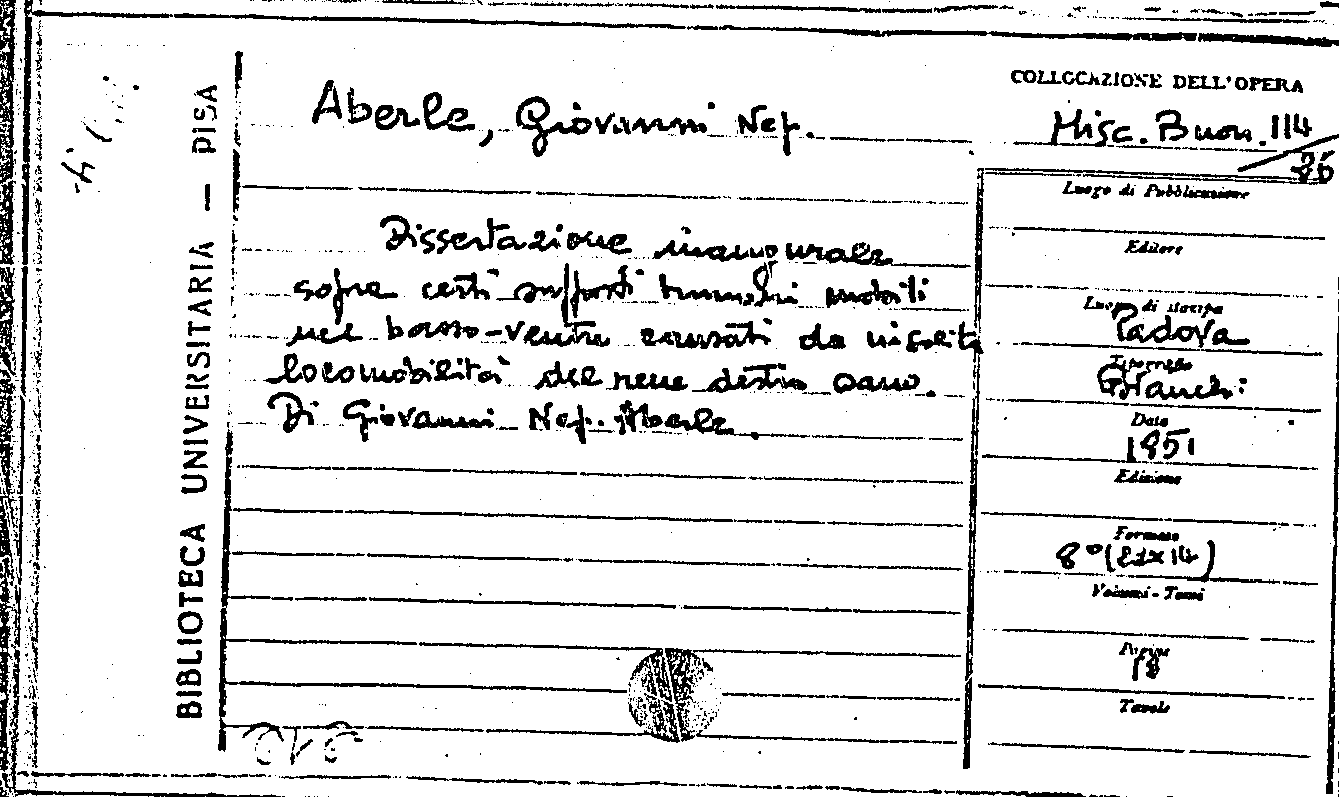 BIBLIOTECA UNIVERSITARIA — PISA
Aberle, Giovanni Nep.
Dissertazione inaugurale
sopra certi supposti tumori mobili
nel basso-ventre causati da insolita
locomobilità del rene destro sano.
Di Giovanni Nep. Aberle.
COLLOCAZIONE DELL'OPERA
Misc. Buon. 114
Luogo di Pubblicazione
Editore
Luogo di stampa
Padova
Tipografo
Bianchi
Data
1851
Edizione
Formato
8° (21x14)
Volumi - Tomi
Pagine
18
Tavole